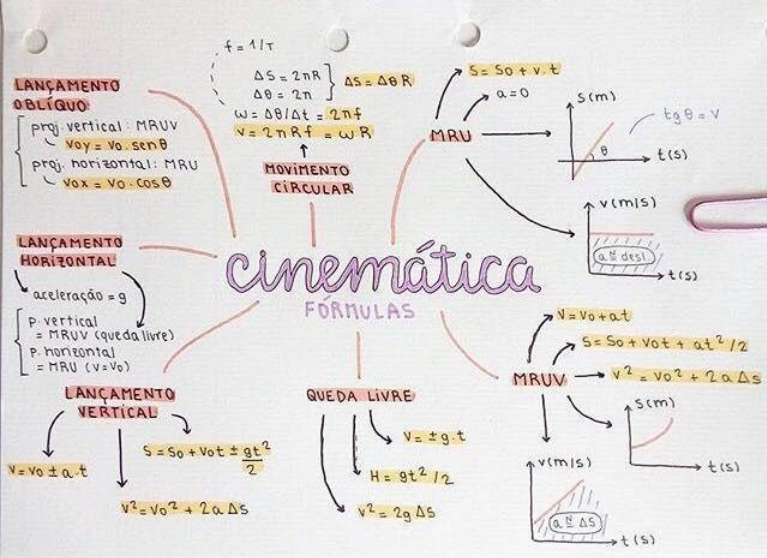 cinemática
FÓRMULAS
LANÇAMENTO
OBLÍQUO
proj. vertical: MRUV
voy = vo.senθ
proj. horizontal: MRU
vox = vo.cosθ
f = 1/T
ΔS = 2πR
Δθ = 2π
ΔS = Δθ R
ω = Δθ/Δt = 2πf
v = 2πRf = ωR
MOVIMENTO
CIRCULAR
MRU
S = So + v.t
a = 0
S(m)
θ
t(s)
tgθ = v
v(m/s)
a N= desl.
t(s)
LANÇAMENTO
HORIZONTAL
aceleração = g
p. vertical
= MRUV (queda livre)
p. horizontal
= MRU (v=vo)
LANÇAMENTO
VERTICAL
v = vo ± a.t
v² = vo² + 2aΔs
S = So + vot ± gt²/2
QUEDA LIVRE
v = ±g.t
H = gt²/2
v² = 2gΔS
MRUV
v = vo + at
S = So + vot + at²/2
v² = vo² + 2aΔs
S(m)
t(s)
v(m/s)
a N= ΔS
t(s)